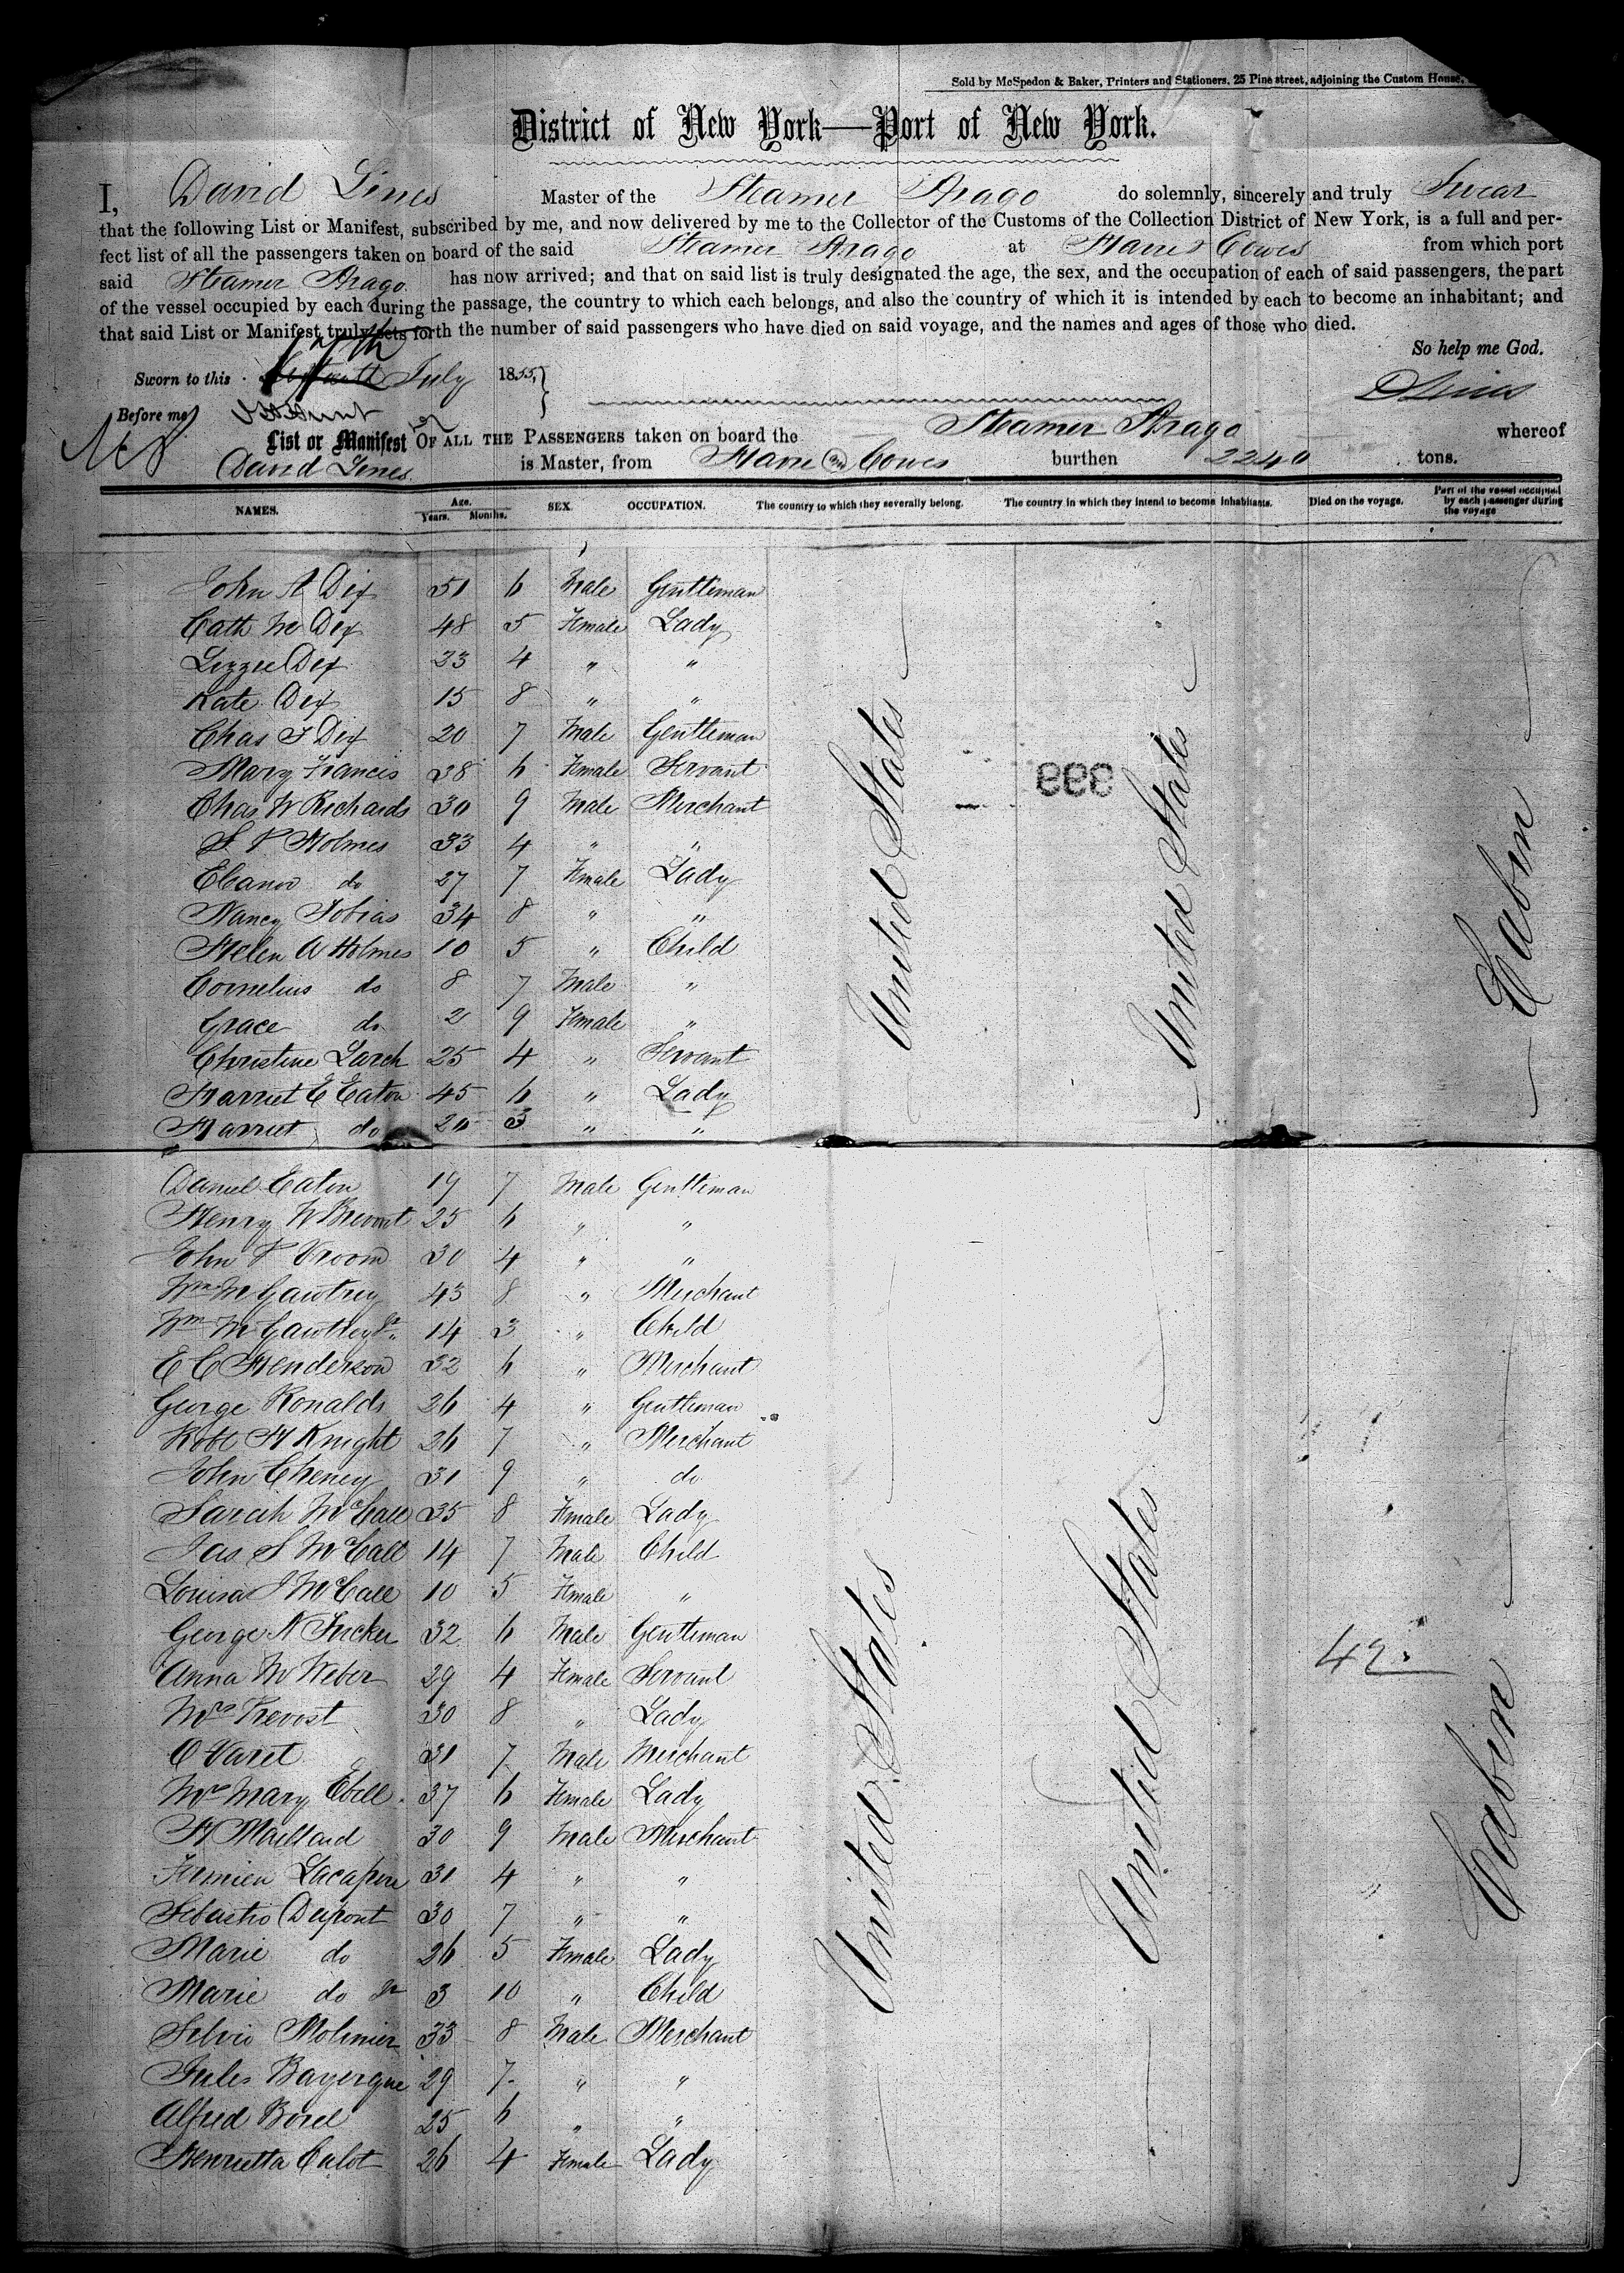 Sold by McSpedon & Baker, Printers and Stationers, 25 Pine street, adjoining the Custom House,
District of New York—Port of New York.
I, David Lines Master of the Steamer Arago do solemnly, sincerely and truly Swear
that the following List or Manifest, subscribed by me, and now delivered by me to the Collector of the Customs of the Collection District of New York, is a full and per-
fect list of all the passengers taken on board of the said Steamer Arago at Havre & Cowes from which port
said Steamer Arago has now arrived; and that on said list is truly designated the age, the sex, and the occupation of each of said passengers, the part
of the vessel occupied by each during the passage, the country to which each belongs, and also the country of which it is intended by each to become an inhabitant; and
that said List or Manifest truly sets forth the number of said passengers who have died on said voyage, and the names and ages of those who died.
So help me God.
Sworn to this 17th July 1855,
D Lines
Before me
List or Manifest OF ALL THE PASSENGERS taken on board the Steamer Arago whereof
David Lines is Master, from Havre and Cowes burthen 2240 tons.
NAMES. Age. Years. Months. SEX. OCCUPATION. The country to which they severally belong. The country in which they intend to become inhabitants. Died on the voyage. Part of the vessel occupied by each passenger during the voyage
John A Dix 51 6 Male Gentleman
Cath M Dix 48 5 Female Lady
Lizzie Dix 23 4 " "
Kate Dix 15 8 " "
Chas T Dix 20 7 Male Gentleman
Mary Francis 38 6 Female Servant
Chas W Richards 30 9 Male Merchant
S P Holmes 33 4 " "
Eleanor do 27 7 Female Lady
Nancy Tobias 34 8 " "
Helen A Holmes 10 5 " Child
Cornelius do 8 7 Male "
Grace do 2 9 Female "
Christine Larch 25 4 " Servant
Harriet E Eaton 45 6 " Lady
Harriet do 20 3 " "
United States
United States
Cabin
399
Daniel Eaton 19 7 Male Gentleman
Henry W Brevort 25 6 " "
John P Vroom 30 4 " "
Wm M Gawtrey 43 8 " Merchant
Wm M Gawtrey Jr 14 3 " Child
E C Henderson 32 6 " Merchant
George Ronalds 26 4 " Gentleman
Robt H Knight 26 7 " Merchant
John Cheney 31 9 " do
Sarah McCall 35 8 Female Lady
Jas S McCall 14 7 Male Child
Louisa J McCall 10 5 Female "
George N Tucker 32 6 Male Gentleman
Anna M Weber 29 4 Female Servant
Mrs Prevost 30 8 " Lady
O Varet 31 7 Male Merchant
Mrs Mary Ebell 37 6 Female Lady
H Maillard 30 9 Male Merchant
Firmien Lacapere 31 4 " "
Sebastio Dupont 30 7 " "
Marie do 26 5 Female Lady
Marie do Jr 3 10 " Child
Silvio Molinier 33 8 Male Merchant
Jules Bayerque 29 7 " "
Alfred Borel 25 6 " "
Henrietta Calot 26 4 Female Lady
United States
United States
42
Cabin